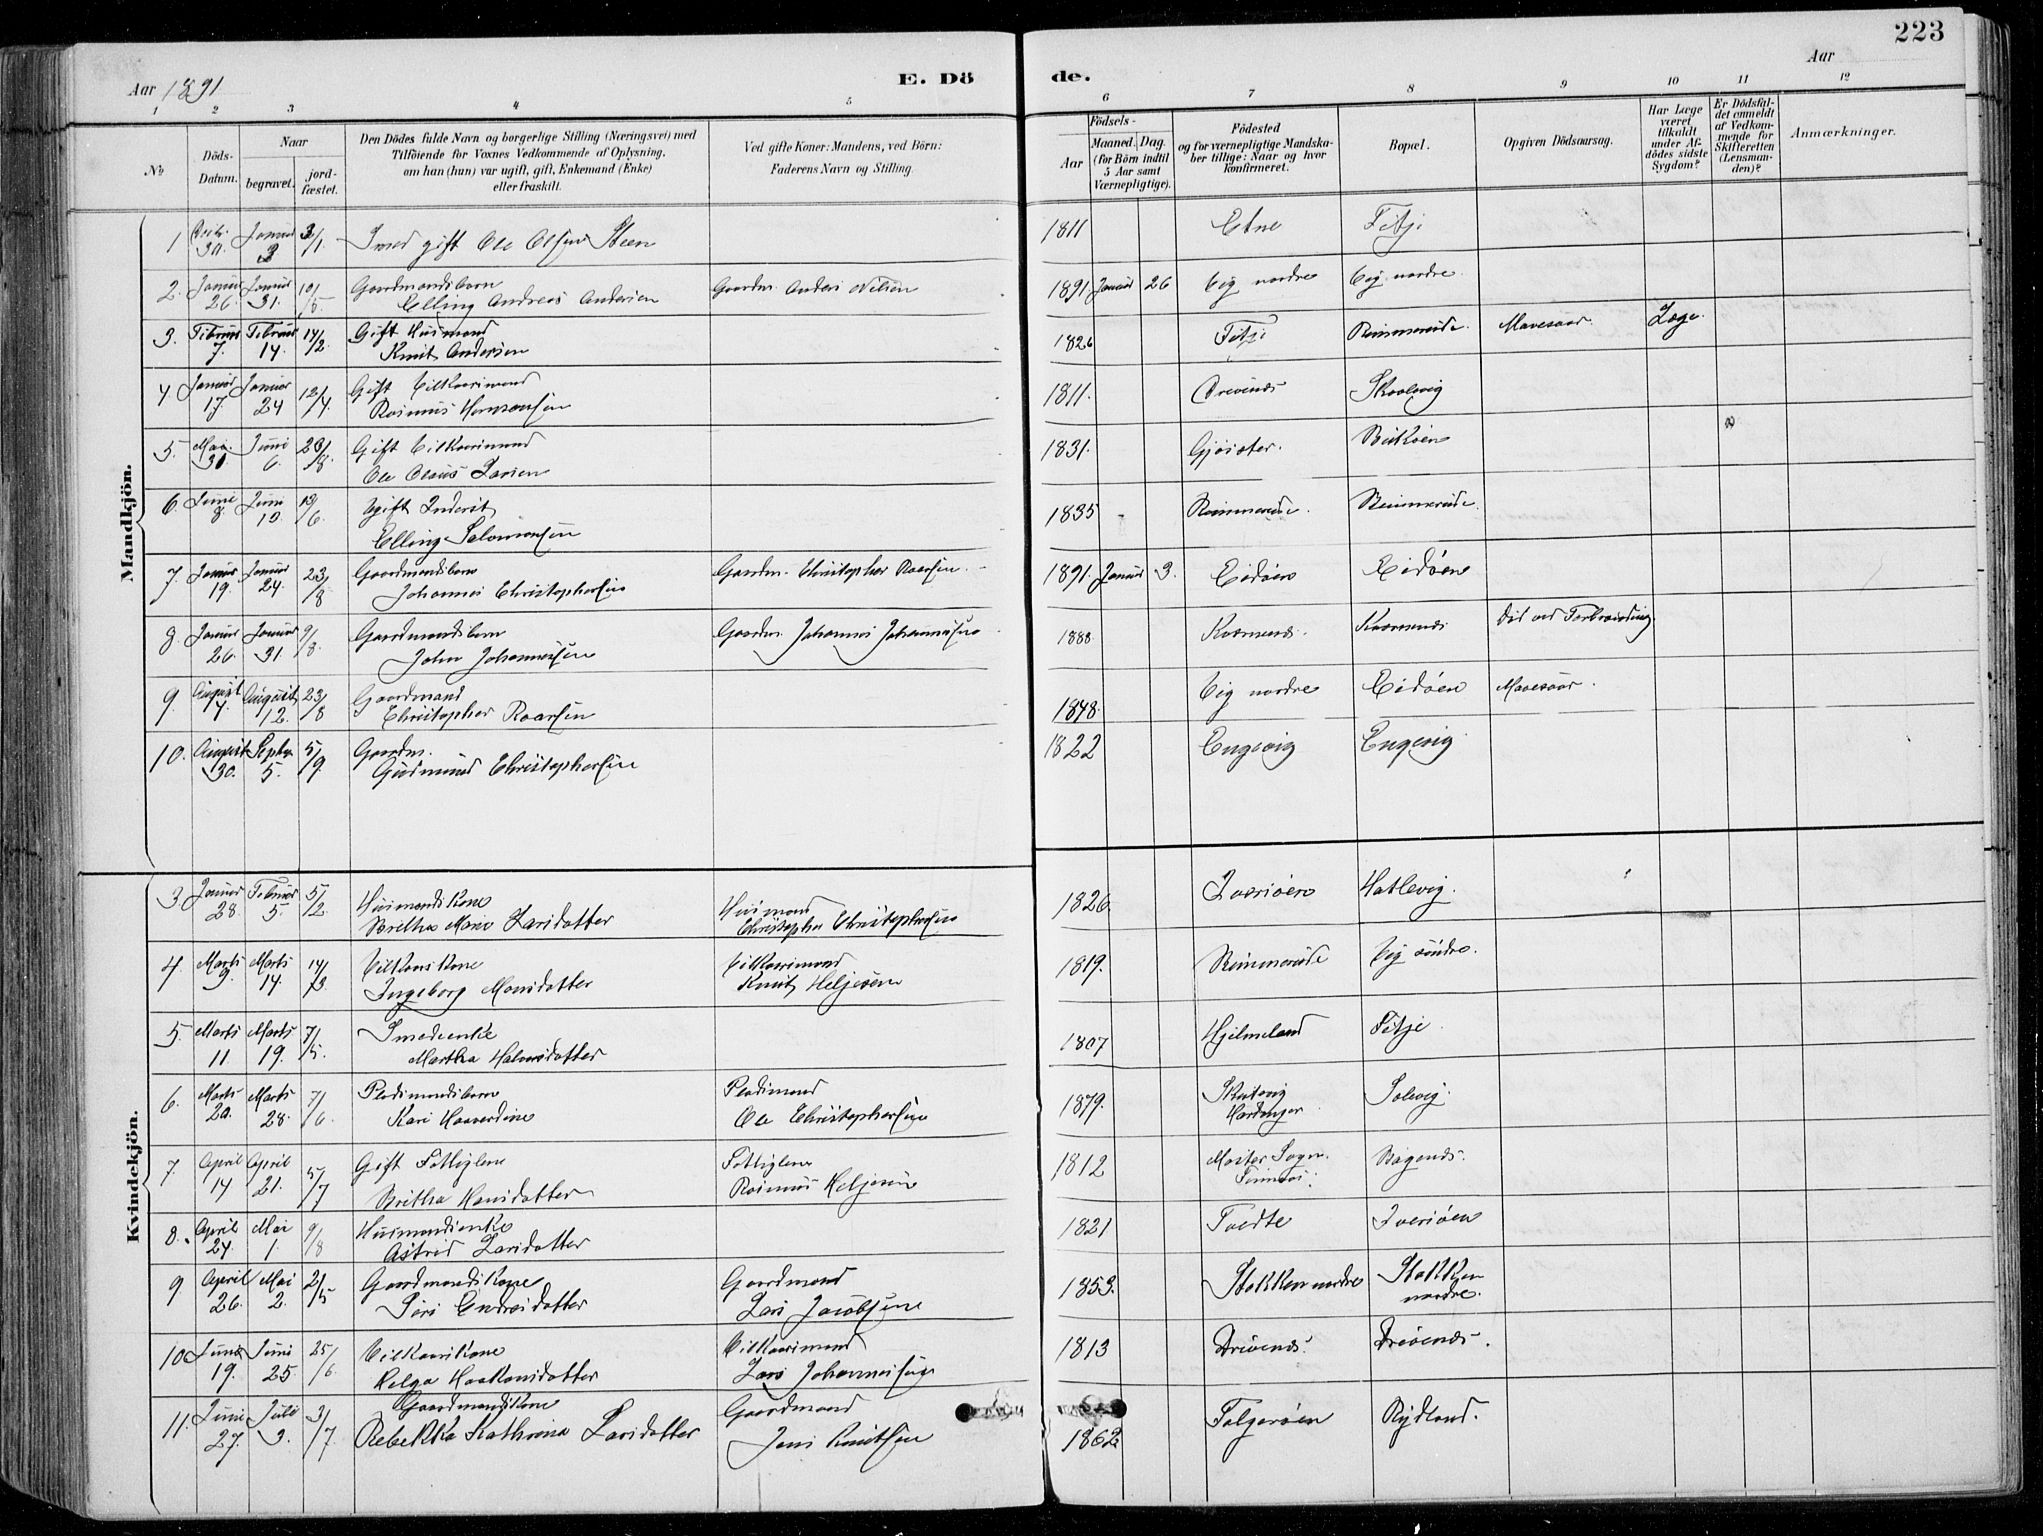 223
Aar 1891
E. Dö
de.
Aar
1 2 3 4 5 6 7 8 9 10 11 12
No
Döds-Datum.
Naar
begravet.
jord-fæstet.
Den Dödes fulde Navn og borgerlige Stilling (Næringsvei) med
Tilföiende for Voxnes Vedkommende af Oplysning,
om han (hun) var ugift, gift, Enkemand (Enke)
eller fraskilt.
Ved gifte Koner: Mandens, ved Börn:
Faderens Navn og Stilling.
Födsels-
Aar
Maaned. Dag.
(for Börn indtil
5 Aar samt
Værnepligtige).
Födested
og for værnepligtige Mandska-
ber tillige: Naar og hvor
konfirmeret.
Bopæl.
Opgiven Dödsaarsag.
Har Læge
været
tilkaldt
under Af-
dödes sidste
Sygdom?
Er Dödsfal-
det anmeldt
af Vedkom-
mende for
Skifteretten
(Lensman-
den)?
Anmærkninger.
Mandkjön.
1 30. Januar 3 3/1. Smed gift Ole Olsen Steen 1811 Etne Fitje
2. Januar 26. Januar 31. 10/5. Gaardmandsbarn Elling Andreas Andersen Gaardm. Anders Nilsen 1891 Januar 26 Vig nordre Vig nordre
3. Februar 7. Februar 14. 14/2. Gift Husmand Knut Andersen 1826 Fitje Rimmereide. Mavesaar. Læge.
4. Januar 17. Januar 24 12/4. Gift Vilkaarsmand Rasmus Hermansen 1811. Skaalevig
5. Mai 31. Juni 6. 23/8. Gift Vilkaarsmand Ole Claus Larsen 1831. Gjøister.
6. Juni 8. Juni 10. /6. Ugift Inderst Elling Salomonsen 1835 Rimmereide. Rimmereide.
7. Januar 19. Januar 24. 23/8 Gaardmandsbarn Johannes Christophersen Gaardm. Christopher Roarsen. 1891. Januar 3. Eidøen Eidøen
8. Januar 26. Januar 31. 9/8. Gaardmandsbarn John Johannessen Gaardm. Johannes Johannessen 1888. Død ved Forbrænding
9 August 7. August 12. 23/8 Gaardmand Christopher Roarsen 1848. Vig nordre Eidøen Mavesaar.
10. August 30. Septbr 5. 5/9. Gaardm. Gudmund Christophersen 1822 Engevig Engevig
Kvindekjön.
3. Januar 28. Februar 5. 5/2. Husmandskone Brithe Marie Larsdatter Husmand Christopher Christophersen 1826. Iversøen Hatlevig.
4. Marts 9. Marts 14. 14/3. Vilkaarskone Ingeborg Monsdatter Vilkaarsmand Knut Heljesen 1819. Rimmereide Vig søndre.
5. Marts 11. Marts 19. 7/5. Smedenke Martha Halvorsdatter 1807 Hjelmeland Fitje.
6. Marts 20. Marts 28. 7/6. Pladsmandsbarn Kari Haaverdine Pladsmand Ole Christophersen 1879. Hardanger Solevig.
7. April 14 April 21. 5/7 Gift Fattiglem Britha Hansdatter Fattiglem Rasmus Heljesen 1812 Moster Sogn.
8. April 24. Mai 1. 9/8 Husmandsenke Astrid Larsdatter 1821 Tvedte Iversøen
9 April 26. Mai 2. 2/5 Gaardmandskone Siri Endresdatter Gaardmand Lars Jacobsen 1853. Stokken nordre Stokken nordre.
10. Juni 19. Juni 25. 25/6. Vilkaarskone Helga Haakonsdatter Vilkaarsmand Lars Johannessen 1813
11. Juni 27. Juli 3. 3/7. Gaardmandskone Rebekka Kathrina Larsdatter Gaardmand Jens Knutsen 1862 Folgerøen Rydland.